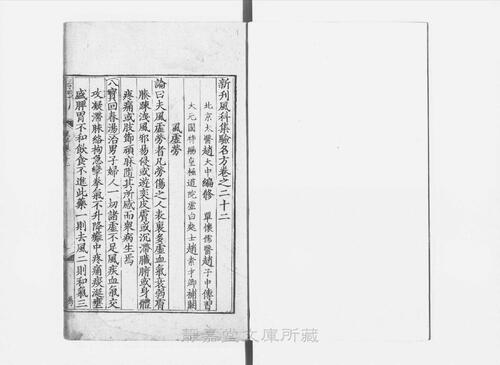 新刊風科集驗名方卷之二十二
北京太醫趙大中編修 覃懷儒醫趙子中傳習
大元國特賜皇極道院虛白處士趙素才卿補闕
風虛勞
論曰夫風虛勞者凡勞傷之人表裏多虛血氣衰弱膚
腠踈洩風邪易侵或遊奕皮膚或沉滯臟腑或身體
疼痛或肢節頑麻隨其所感而衆病生焉
八寶回春湯治男子婦人一切諸虛不足風疾血氣交
攻凝滯脉絡拘急攣拳氣不升降癱中疼痛痰涎壅
盛脾胃不和飲食不進此藥一則去風二則和氣三
靜嘉堂文庫所藏